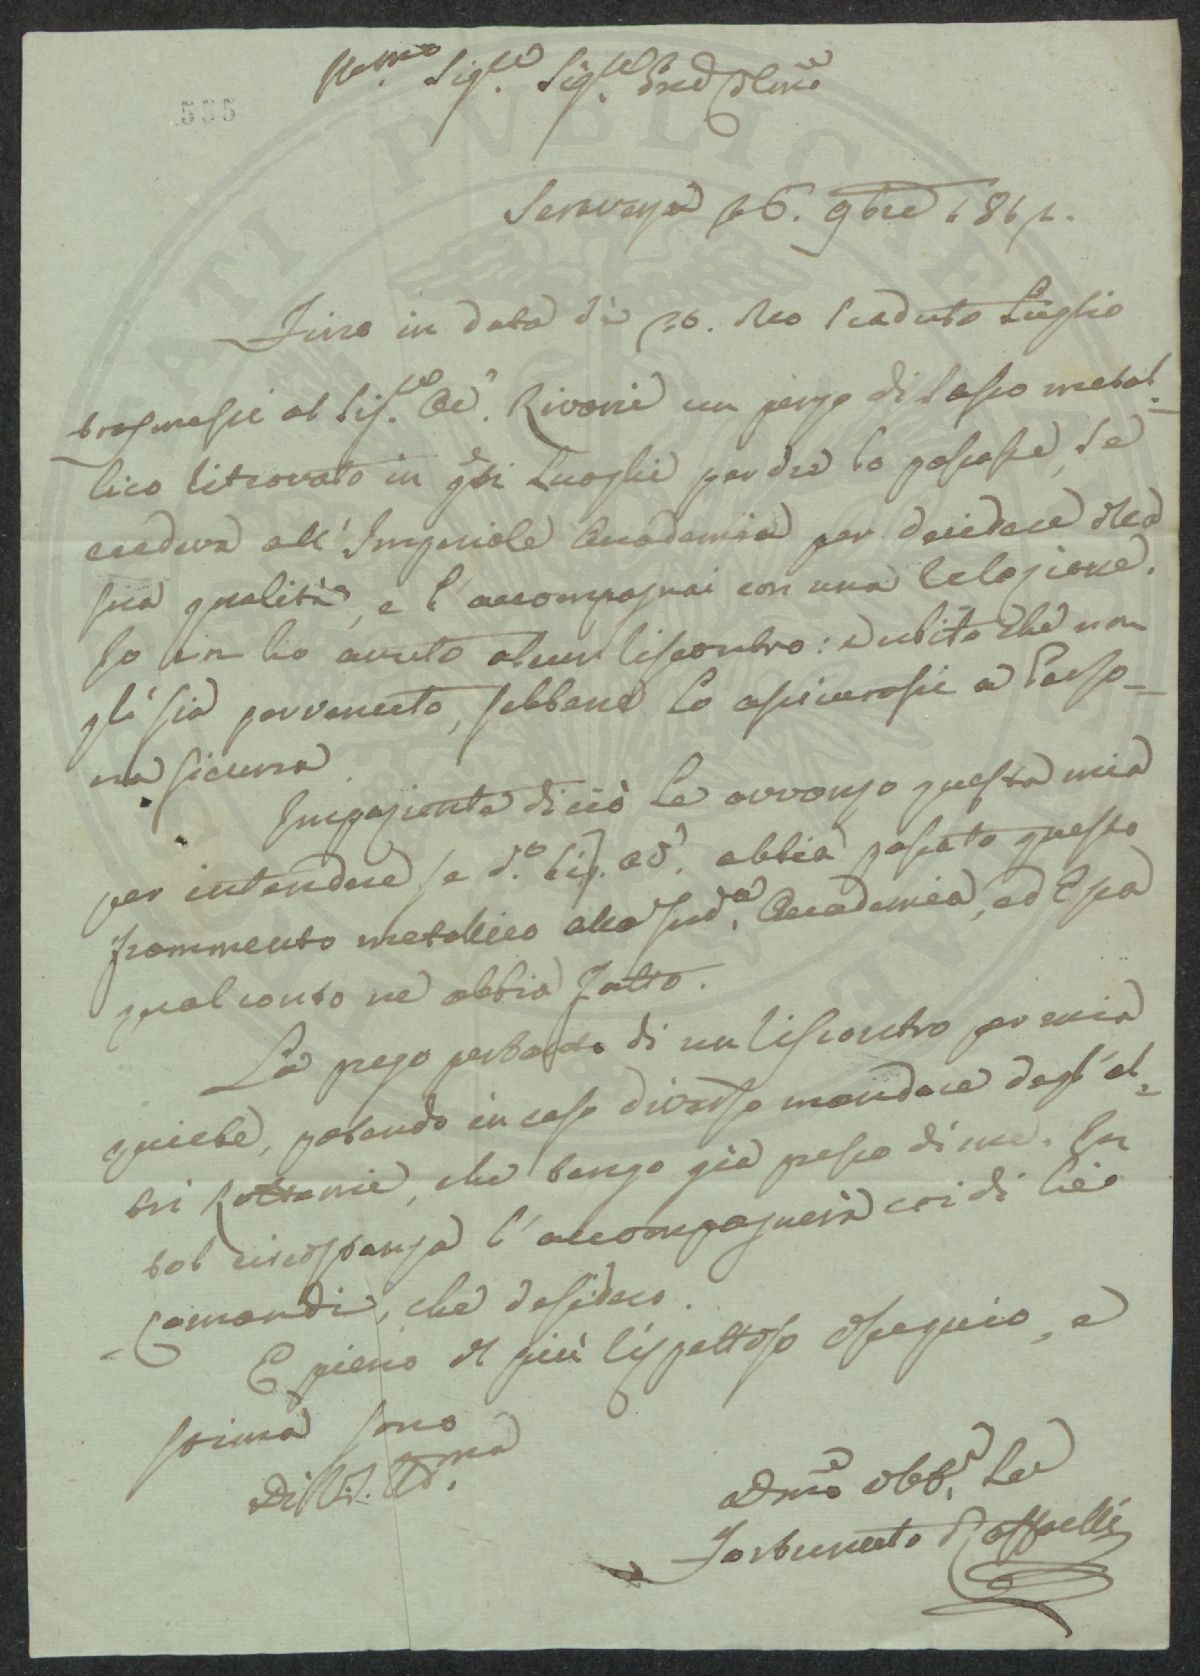 555
Sig.re Sig.re
Seravezza 16. 9bre 1811.
Fino in data de 26. dello scaduto Luglio
trasmessi al Sig.re Av.e un pezzo di sasso metal-
lico ritrovato in q.ti Luoghi perche lo passasse, se
credeva all' Imperiale Accademia per decidere della
sua qualità, e l'accompagnai con una relazione.
Io non ho avuto alcun riscontro: dubito che non
gl' sia pervenuto, sebbene lo assicurassi a Perso-
na sicura.
Impaziente di ciò Le avvanzo questa mia
per intendere se d.o Sig. av.e abbia passato questo
frammento metallico alla sud.a Accademia, ed Essa
qual conto ne abbia fatto.
La prego pertanto di un riscontro per mia
quiete, potendo in caso diverso mandare degl' al-
tri Rottami, che tengo già presso di me. In
tal circostanza l' accompagnerà coi di Lei
Comandi, che desidero.
E pieno del più rispettoso ossequio, e
stima sono
Di V.S. Ill.ma
Dmo Obb. Se
Fortunato Raffaelli